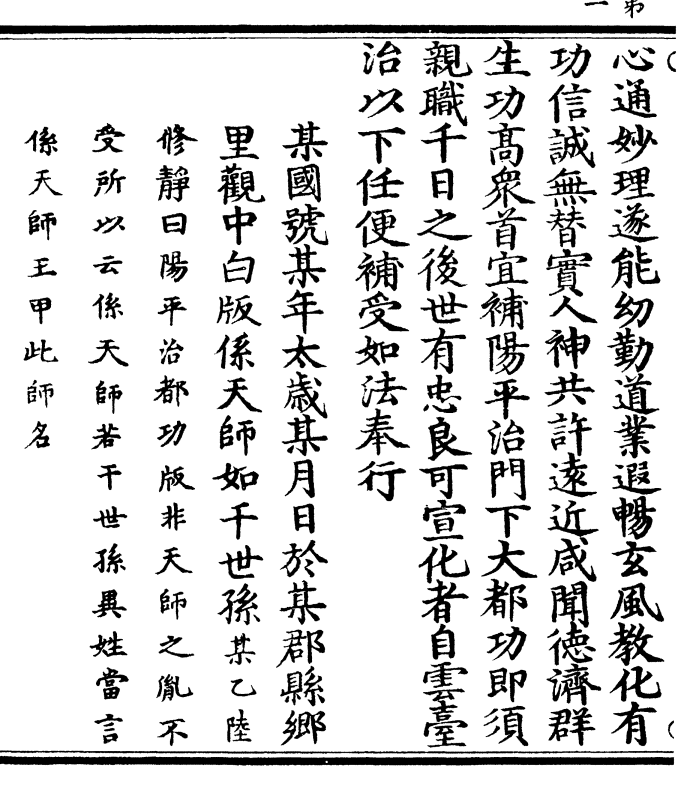 弟一
心通妙理遂能幼勤道業遐暢玄風教化有
功信誠無替實人神共許遠近咸聞德濟群
生功高衆首宜補陽平治門下大都功即須
親職千日之後世有忠良可宣化者自雲臺
治以下任便補受如法奉行
某國號某年太歲某月日於某郡縣鄉
里觀中白版係天師如干世孫某乙陸
修靜曰陽平治都功版非天師之胤不
受所以云係天師若干世孫異姓當言
係天師王甲此師名